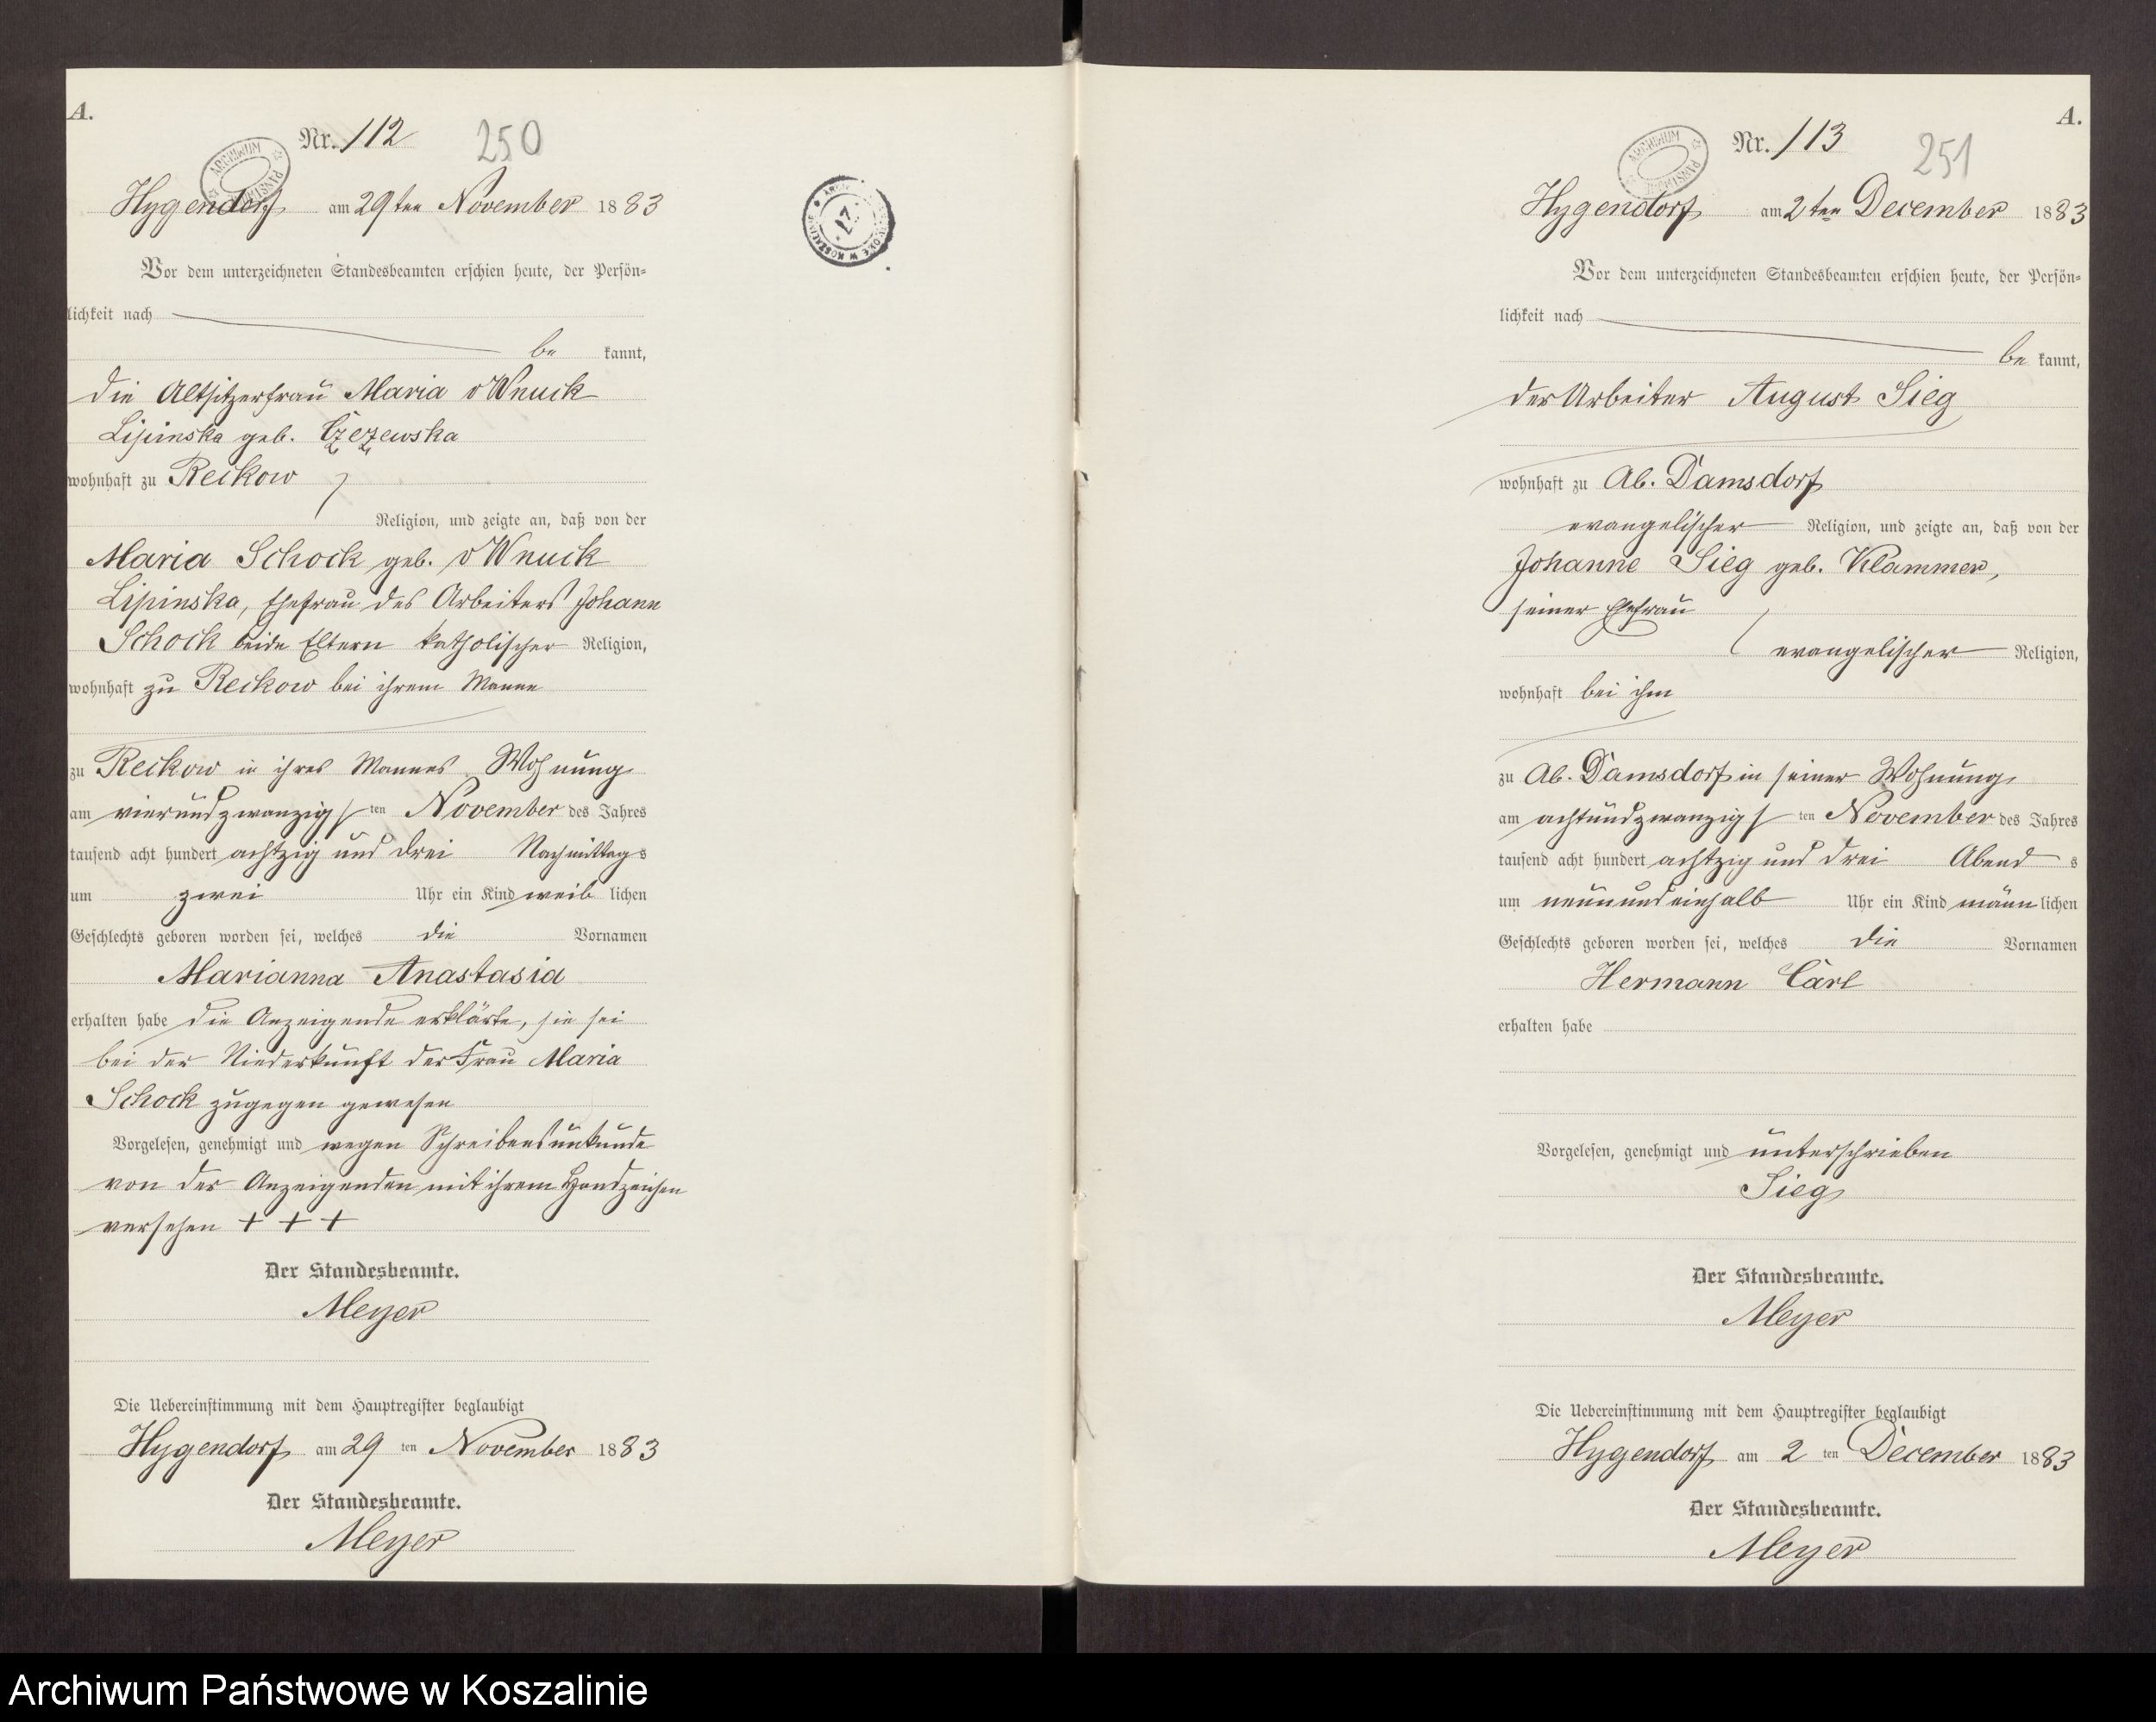 A.
Nr. 112
250
Hygendorf am 29ten November 1883
Vor dem unterzeichneten Standesbeamten erschien heute, der Persön=
lichkeit nach
be kannt,
die Altsitzerfrau Maria v Wnuck
Lipinska geb. Czezewska
wohnhaft zu Reckow
Religion, und zeigte an, daß von der
Maria Schock geb. v Wnuck
Lipinska, Ehefrau des Arbeiters Johann
Schock beide Eltern katholischer Religion,
wohnhaft zu Reckow bei ihrem Manne
zu Reckow in ihres Mannes Wohnung
am vierundzwanzigsten November des Jahres
tausend acht hundert achtzig und drei Nachmittags
um zwei Uhr ein Kind weiblichen
Geschlechts geboren worden sei, welches die Vornamen
Marianna Anastasia
erhalten habe die Anzeigende erklärte, sie sei
bei der Niederkunft der Frau Maria
Schock zugegen gewesen
Vorgelesen, genehmigt und wegen Schreibensunkunde
von der Anzeigenden mit ihrem Handzeichen
versehen + + +
Der Standesbeamte.
Meyer
Die Uebereinstimmung mit dem Hauptregister beglaubigt
Hygendorf am 29 ten November 1883
Der Standesbeamte.
Meyer
A.
Nr. 113
251
Hygendorf am 2ten December 1883
Vor dem unterzeichneten Standesbeamten erschien heute, der Persön=
lichkeit nach
be kannt,
der Arbeiter August Sieg
wohnhaft zu Ab. Damsdorf
evangelischer Religion, und zeigte an, daß von der
Johanne Sieg geb. Klammer,
seiner Ehefrau
evangelischer Religion,
wohnhaft bei ihm
zu Ab. Damsdorf in seiner Wohnung
am achtundzwanzigsten November des Jahres
tausend acht hundert achtzig und drei Abends
um neunundeinhalb Uhr ein Kind männlichen
Geschlechts geboren worden sei, welches die Vornamen
Hermann Carl
erhalten habe
Vorgelesen, genehmigt und unterschrieben
Sieg
Der Standesbeamte.
Meyer
Die Uebereinstimmung mit dem Hauptregister beglaubigt
Hygendorf am 2 ten December 1883
Der Standesbeamte.
Meyer
Archiwum Państwowe w Koszalinie